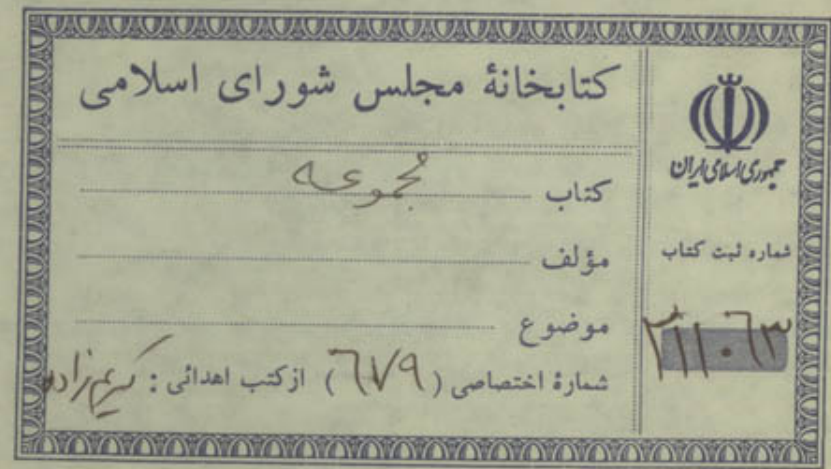 کتابخانهٔ مجلس شورای اسلامی
کتاب مجموعه
مؤلف
موضوع
شمارهٔ اختصاصی (۶۷۹) ازکتب اهدائی : کریم‌زاده
جمهوری اسلامی ایران
شماره ثبت کتاب
۲۱۱۰۶۳